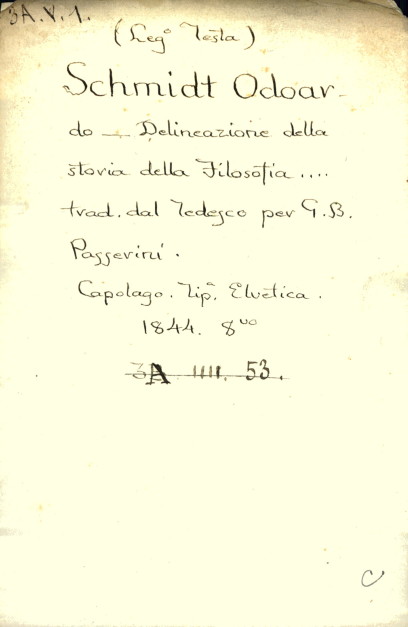 3A.V.1.
(Leg.º Testa)
Schmidt Odoar-
do — Delineazione della
storia della Filosofia ....
trad. dal Tedesco per G.B.
Passerini.
Capolago. Tip.ª Elvetica.
1844. 8ᵛᵒ
3A IIII. 53.
C